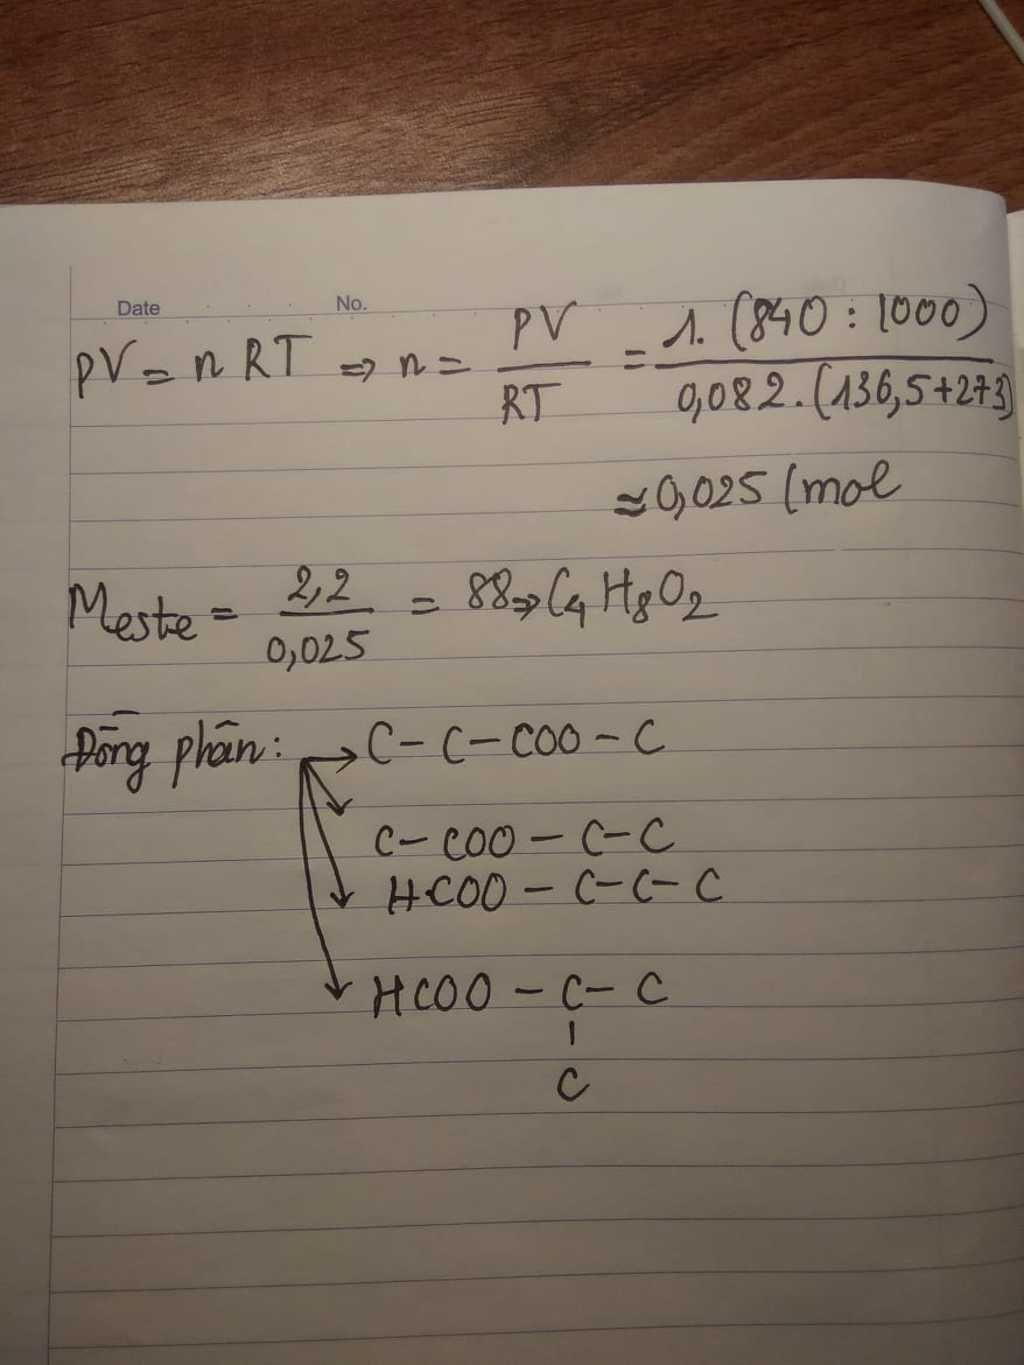 Date No.
PV = nRT => n = PV/RT = 1.(840:1000)/0,082.(136,5+273)
≈ 0,025 (mol
Meste = 2,2/0,025 = 88 => C4H8O2
Đồng phân: → C - C - COO - C
C - COO - C - C
HCOO - C - C - C
HCOO - C - C
C